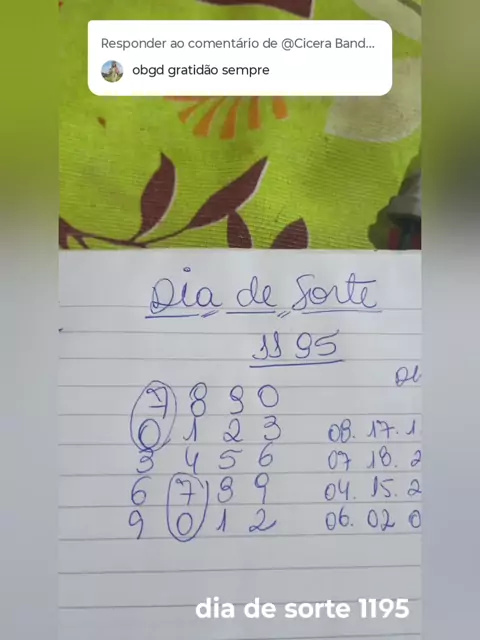 Responder ao comentário de @Cicera Band...
obgd gratidão sempre
Dia de Sorte
1195
7 8 9 0
0 1 2 3 08. 17. 1
3 4 5 6 07 18. 2
6 7 8 9 04. 15. 2
9 0 1 2 06. 02 0
dia de sorte 1195